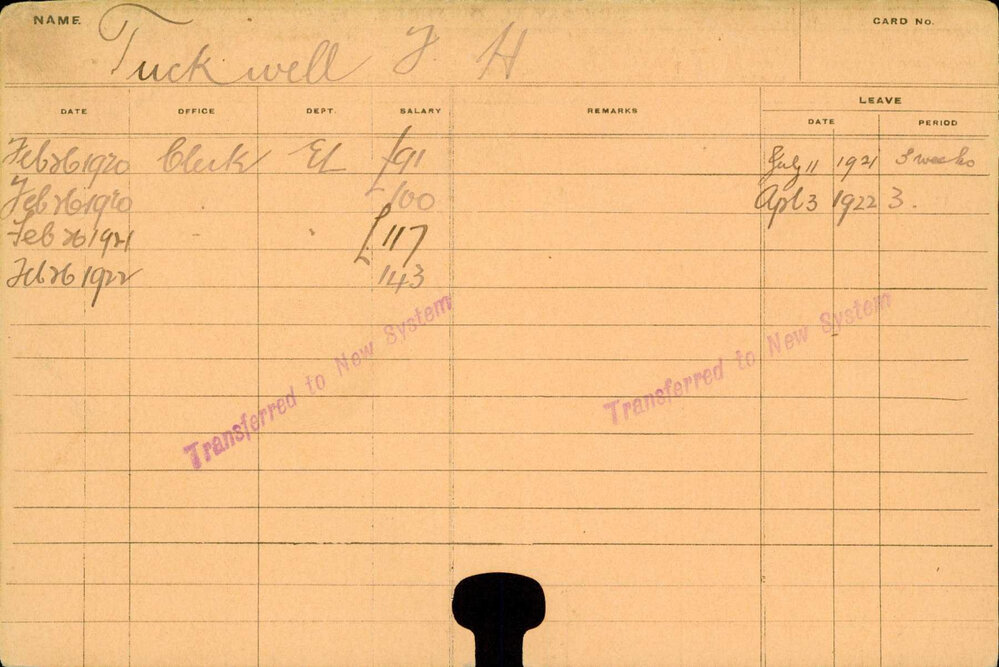 NAME. Tuckwell F H CARD No.
DATE OFFICE DEPT. SALARY REMARKS LEAVE
DATE PERIOD
Feb 26 1920 Clerk EL £91 July 11 1921 3 weeks
Feb 26 1920 100 Apl 3 1922 3.
Feb 26 1921 " £117
Feb 26 1922 143
Transferred to New System
Transferred to New System